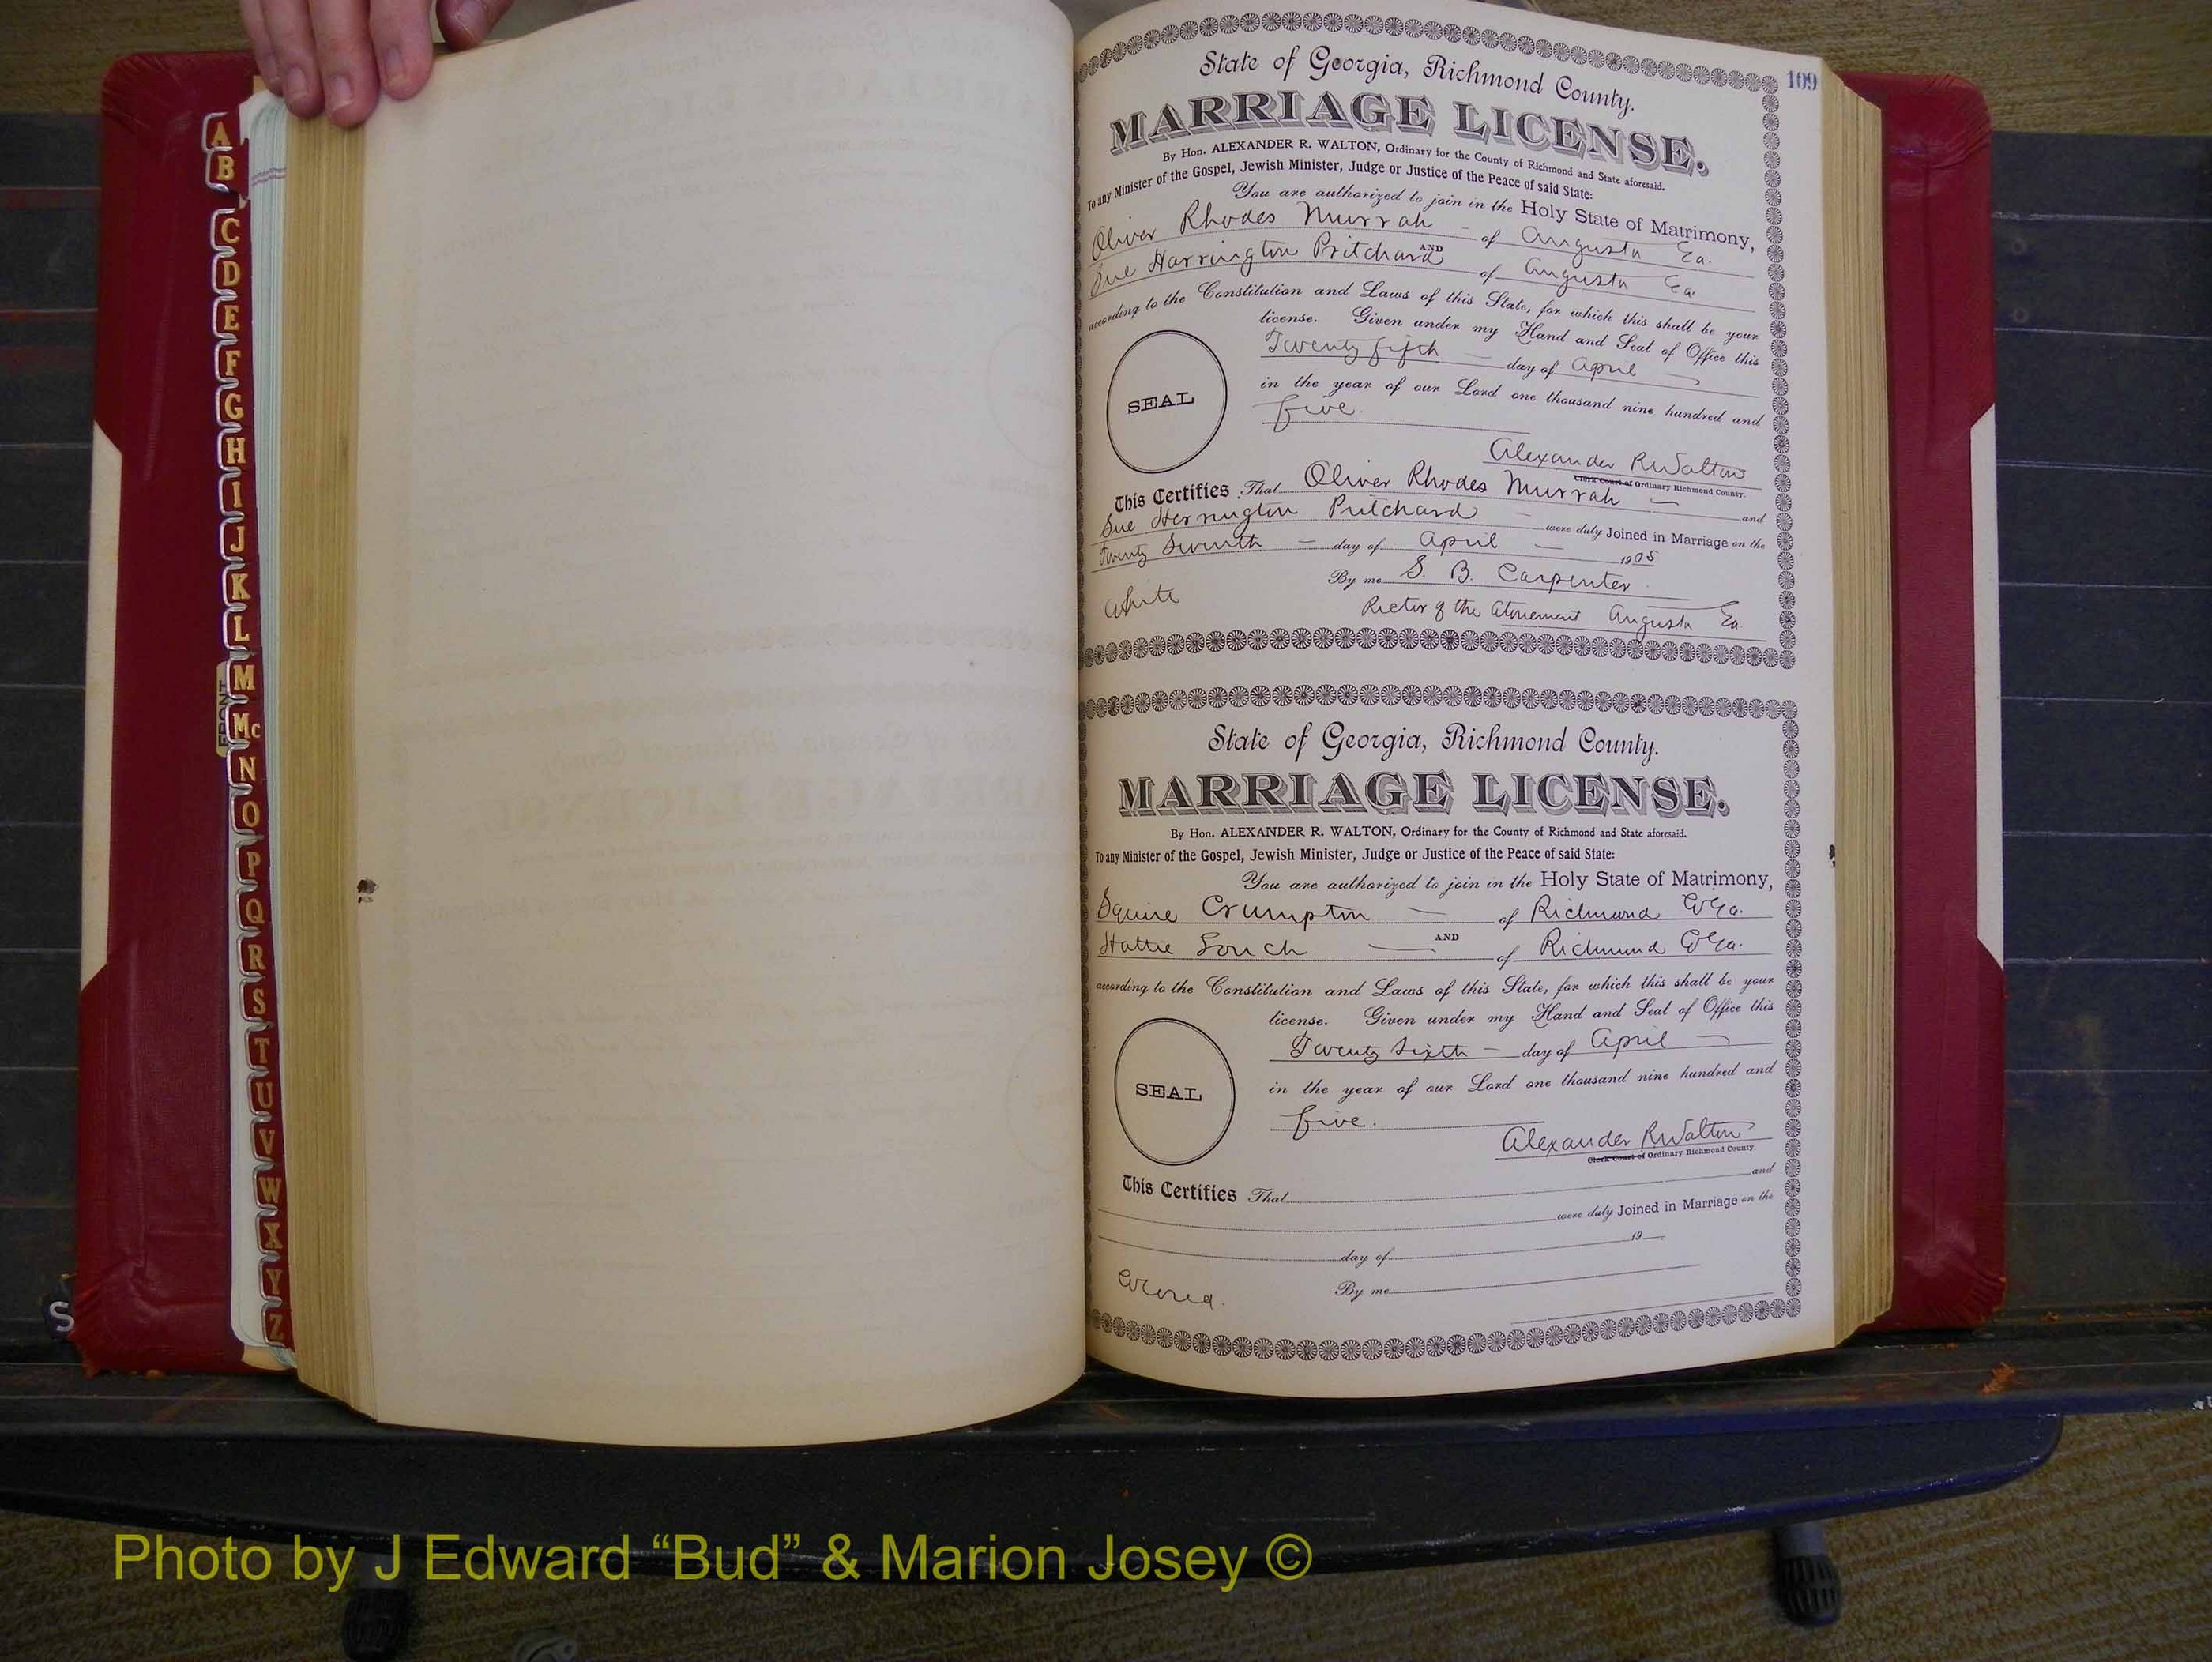 A
B
C
D
E
F
G
H
I
J
K
L
M
Mc
N
O
P
Q
R
S
T
U
V
W
X
Y
Z
FRONT
109
State of Georgia, Richmond County.
MARRIAGE LICENSE.
By Hon. ALEXANDER R. WALTON, Ordinary for the County of Richmond and State aforesaid.
To any Minister of the Gospel, Jewish Minister, Judge or Justice of the Peace of said State:
You are authorized to join in the Holy State of Matrimony,
Oliver Rhodes Murrah of Augusta Ga.
AND
Sue Harrington Pritchard of Augusta Ga.
according to the Constitution and Laws of this State, for which this shall be your
license. Given under my Hand and Seal of Office this
Twenty fifth day of April
in the year of our Lord one thousand nine hundred and
SEAL
five.
Alexander R Walton
Clerk Court of Ordinary Richmond County.
This Certifies That Oliver Rhodes Murrah and
Sue Herrington Pritchard were duly Joined in Marriage on the
Twenty Seventh day of April 1905
By me S. B. Carpenter
White
Rector of the Atonement Augusta Ga
State of Georgia, Richmond County.
MARRIAGE LICENSE.
By Hon. ALEXANDER R. WALTON, Ordinary for the County of Richmond and State aforesaid.
To any Minister of the Gospel, Jewish Minister, Judge or Justice of the Peace of said State:
You are authorized to join in the Holy State of Matrimony,
Squire Crumpton of Richmond Co Ga.
AND
Hattie of Richmond Co Ga.
according to the Constitution and Laws of this State, for which this shall be your
license. Given under my Hand and Seal of Office this
Twenty Sixth day of April
in the year of our Lord one thousand nine hundred and
SEAL
five.
Alexander R Walton
Clerk Court of Ordinary Richmond County.
This Certifies That and
were duly Joined in Marriage on the
day of 19
Colored.
By me
Photo by J Edward “Bud” & Marion Josey ©